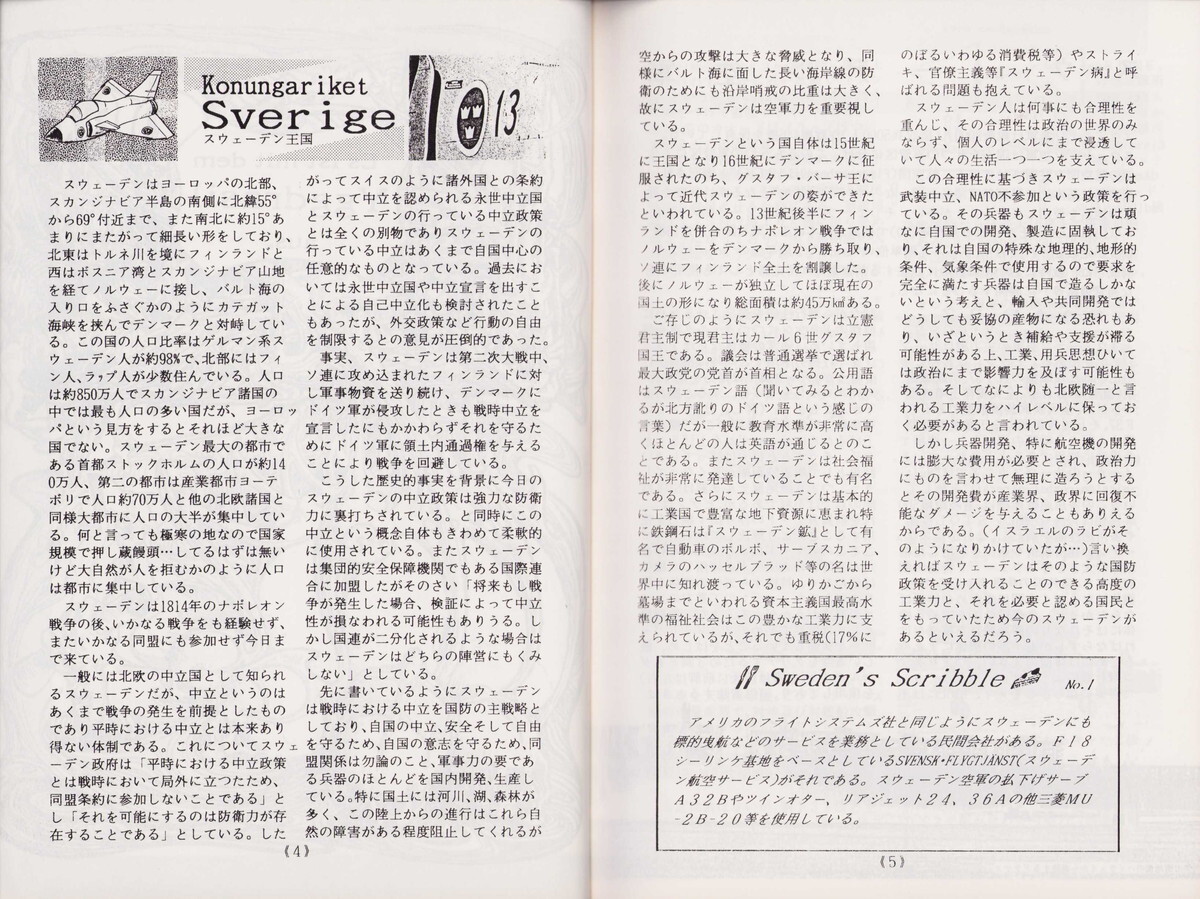 Konungariket
Sverige
スウェーデン王国
13
スウェーデンはヨーロッパの北部、
スカンジナビア半島の南側に北緯55°
から69°付近まで、また南北に約15°あ
まりにまたがって細長い形をしており、
北東はトルネ川を境にフィンランドと
西はボスニア湾とスカンジナビア山地
を経てノルウェーに接し、バルト海の
入り口をふさぐかのようにカテガット
海峡を挟んでデンマークと対峙してい
る。この国の人口比率はゲルマン系ス
ウェーデン人が約98%で、北部にはフィ
ン人、ラップ人が少数住んでいる。人口
は約850万人でスカンジナビア諸国の
中では最も人口の多い国だが、ヨーロッ
パという見方をするとそれほど大きな
国でない。スウェーデン最大の都市で
ある首都ストックホルムの人口が約14
0万人、第二の都市は産業都市ヨーテ
ボリで人口約70万人と他の北欧諸国と
同様大都市に人口の大半が集中してい
る。何と言っても極寒の地なので国家
規模で押し蔵饅頭…してるはずは無い
けど大自然が人を拒むかのように人口
は都市に集中している。
スウェーデンは1814年のナポレオン
戦争の後、いかなる戦争をも経験せず、
またいかなる同盟にも参加せず今日ま
で来ている。
一般には北欧の中立国として知られ
るスウェーデンだが、中立というのは
あくまで戦争の発生を前提としたもの
であり平時における中立とは本来あり
得ない体制である。これについてスウェ
ーデン政府は「平時における中立政策
とは戦時において局外に立つため、
同盟条約に参加しないことである」と
し「それを可能にするのは防衛力が存
在することである」としている。した
がってスイスのように諸外国との条約
によって中立を認められる永世中立国
とスウェーデンの行っている中立政策
とは全くの別物でありスウェーデンの
行っている中立はあくまで自国中心の
任意的なものとなっている。過去にお
いては永世中立国や中立宣言を出すこ
とによる自己中立化も検討されたこと
もあったが、外交政策など行動の自由
を制限するとの意見が圧倒的であった。
事実、スウェーデンは第二次大戦中、
ソ連に攻め込まれたフィンランドに対
し軍事物資を送り続け、デンマークに
ドイツ軍が侵攻したときも戦時中立を
宣言したにもかかわらずそれを守るた
めにドイツ軍に領土内通過権を与える
ことにより戦争を回避している。
こうした歴史的事実を背景に今日の
スウェーデンの中立政策は強力な防衛
力に裏打ちされている。と同時にこの
中立という概念自体もきわめて柔軟的
に使用されている。またスウェーデン
は集団的安全保障機関でもある国際連
合に加盟したがそのさい「将来もし戦
争が発生した場合、検証によって中立
性が損なわれる可能性もありうる。し
かし国連が二分化されるような場合は
スウェーデンはどちらの陣営にもくみ
しない」としている。
先に書いているようにスウェーデン
は戦時における中立を国防の主戦略と
しており、自国の中立、安全そして自由
を守るため、自国の意志を守るため、同
盟関係は勿論のこと、軍事力の要であ
る兵器のほとんどを国内開発、生産し
ている。特に国土には河川、湖、森林が
多く、この陸上からの進行はこれら自
然の障害がある程度阻止してくれるが
《4》
空からの攻撃は大きな脅威となり、同
様にバルト海に面した長い海岸線の防
衛のためにも沿岸哨戒の比重は大きく、
故にスウェーデンは空軍力を重要視し
ている。
スウェーデンという国自体は15世紀
に王国となり16世紀にデンマークに征
服されたのち、グスタフ・バーサ王に
よって近代スウェーデンの姿ができた
といわれている。13世紀後半にフィン
ランドを併合のちナポレオン戦争では
ノルウェーをデンマークから勝ち取り、
ソ連にフィンランド全土を割譲した。
後にノルウェーが独立してほぼ現在の
国土の形になり総面積は約45万㎢ある。
ご存じのようにスウェーデンは立憲
君主制で現君主はカール6世グスタフ
国王である。議会は普通選挙で選ばれ
最大政党の党首が首相となる。公用語
はスウェーデン語(聞いてみるとわか
るが北方訛りのドイツ語という感じの
言葉)だが一般に教育水準が非常に高
くほとんどの人は英語が通じるとのこ
とである。またスウェーデンは社会福
祉が非常に発達していることでも有名
である。さらにスウェーデンは基本的
に工業国で豊富な地下資源に恵まれ特
に鉄鋼石は『スウェーデン鉱』として有
名で自動車のボルボ、サーブスカニア、
カメラのハッセルブラッド等の名は世
界中に知れ渡っている。ゆりかごから
墓場までといわれる資本主義国最高水
準の福祉社会はこの豊かな工業力に支
えられているが、それでも重税(17%に
のぼるいわゆる消費税等)やストライ
キ、官僚主義等『スウェーデン病』と呼
ばれる問題も抱えている。
スウェーデン人は何事にも合理性を
重んじ、その合理性は政治の世界のみ
ならず、個人のレベルにまで浸透して
いて人々の生活一つ一つを支えている。
この合理性に基づきスウェーデンは
武装中立、NATO不参加という政策を行っ
ている。その兵器もスウェーデンは頑
なに自国での開発、製造に固執してお
り、それは自国の特殊な地理的、地形的
条件、気象条件で使用するので要求を
完全に満たす兵器は自国で造るしかな
いという考えと、輸入や共同開発では
どうしても妥協の産物になる恐れもあ
り、いざというとき補給や支援が滞る
可能性がある上、工業、用兵思想ひいて
は政治にまで影響力を及ぼす可能性も
ある。そしてなによりも北欧随一と言
われる工業力をハイレベルに保ってお
く必要があると言われている。
しかし兵器開発、特に航空機の開発
には膨大な費用が必要とされ、政治力
にものを言わせて無理に造ろうとする
とその開発費が産業界、政界に回復不
能なダメージを与えることもありえる
からである。(イスラエルのラビがそ
のようになりかけていたが…)言い換
えればスウェーデンはそのような国防
政策を受け入れることのできる高度の
工業力と、それを必要と認める国民と
をもっていたため今のスウェーデンが
あるといえるだろう。
Sweden's Scribble No.1
アメリカのフライトシステムズ社と同じようにスウェーデンにも
標的曳航などのサービスを業務としている民間会社がある。F18
シーリンケ基地をベースとしているSVENSK・FLYGTJÄNST(スウェーデ
ン航空サービス)がそれである。スウェーデン空軍の払下げサーブ
A32Bやツインオター、リアジェット24、36Aの他三菱MU
-2B-20等を使用している。
《5》